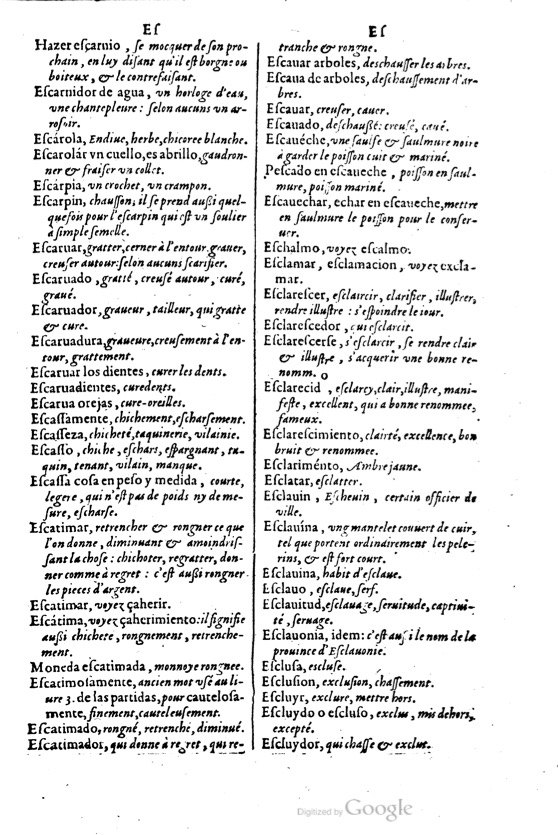 Eſ
Hazer eſcarnio, ſe mocquer de ſon pro-
chain, en luy diſant qu'il eſt borgne ou
boiteux, & le contrefaiſant.
Eſcarnidor de agua, vn horloge d'eau,
vne chantepleure: ſelon aucuns vn ar-
roſoir.
Eſcárola, Endiue, herbe, chicoree blanche.
Eſcarolár vn cuello, es abrillo, gaudron-
ner & fraiſer vn collet.
Eſcárpia, vn crochet, vn crampon.
Eſcarpin, chauſſon; il ſe prend auſſi quel-
quefois pour l'eſcarpin qui eſt vn ſoulier
à ſimple ſemelle.
Eſcaruar, gratter, cerner à l'entour, grauer,
creuſer autour: ſelon aucuns ſcarifier.
Eſcaruado, gratté, creuſé autour, curé,
graué.
Eſcaruador, graueur, tailleur, qui gratte
& cure.
Eſcaruadura, graueure, creuſement à l'en-
tour, grattement.
Eſcaruar los dientes, curer les dents.
Eſcaruadientes, curedents.
Eſcarua orejas, cure-oreilles.
Eſcaſſamente, chichement, eſcharſement.
Eſcaſſeza, chicheté, taquinerie, vilainie.
Eſcaſſo, chiche, eſchars, eſpargnant, ta-
quin, tenant, vilain, manque.
Eſcaſſa coſa en peſo y medida, courte,
legere, qui n'eſt pas de poids ny de me-
ſure, eſcharſe.
Eſcatimar, retrencher & rongner ce que
l'on donne, diminuant & amoindriſ-
ſant la choſe: chichoter, regratter, don-
ner comme à regret: c'eſt auſſi rongner
les pieces d'argent.
Eſcatimar, voyez çaherir.
Eſcátima, voyez çaherimiento: il ſignifie
auſſi chichete, rongnement, retrenche-
ment.
Moneda eſcatimada, monnoye rongnee.
Eſcatimoſamente, ancien mot vſé au li-
ure 3. de las partidas, pour cauteloſa-
mente, finement, cauteleuſement.
Eſcatimado, rongné, retrenché, diminué.
Eſcatimador, qui donne à regret, qui re-
Eſ
tranche & rongne.
Eſcauar arboles, deschauſſer les arbres.
Eſcaua de arboles, deſchauſſement d'ar-
bres.
Eſcauar, creuſer, cauer.
Eſcauado, deſchauſſé: creuſé, caué.
Eſcauéche, vne ſaulſe & ſaulmure noire
à garder le poiſſon cuit & mariné.
Peſcado en eſcaueche, poiſſon en ſaul-
mure, poiſſon mariné.
Eſcauechar, echar en eſcaueche, mettre
en ſaulmure le poiſſon pour le conſer-
uer.
Eſchalmo, voyez eſcalmo.
Eſclamar, eſclamacion, voyez excla-
mar.
Eſclareſcer, eſclaircir, clarifier, illuſtrer,
rendre illuſtre: s'eſpoindre le iour.
Eſclareſcedor, qui eſclarcit.
Eſclareſcerſe, s'eſclarcir, ſe rendre clair
& illuſtre, s'acquerir vne bonne re-
nomm.
Eſclarecid, eſclarcy, clair, illuſtre, mani-
feſte, excellent, qui a bonne renommee,
fameux.
Eſclareſcimiento, clairté, excellence, bon
bruit & renommee.
Eſclariménto, Ambre jaune.
Eſclatar, eſclatter.
Eſclauin, Eſcheuin, certain officier de
ville.
Eſclauína, vng mantelet couuert de cuir,
tel que portent ordinairement les pele-
rins, & eſt fort court.
Eſclauina, habit d'eſclaue.
Eſclauo, eſclaue, ſerf.
Eſclauitud, eſclauage, ſeruitude, captiui-
té, ſeruage.
Eſclauonia, idem: c'eſt auſſi le nom de la
prouince d'Eſclauonie.
Eſcluſa, escluſe.
Eſcluſion, excluſion, chaſſement.
Eſcluyr, exclure, mettre hors.
Eſcluydo o eſcluſo, exclus, mis dehors,
excepté.
Eſcluydor, qui chaſſe & exclut.
Digitized by Google